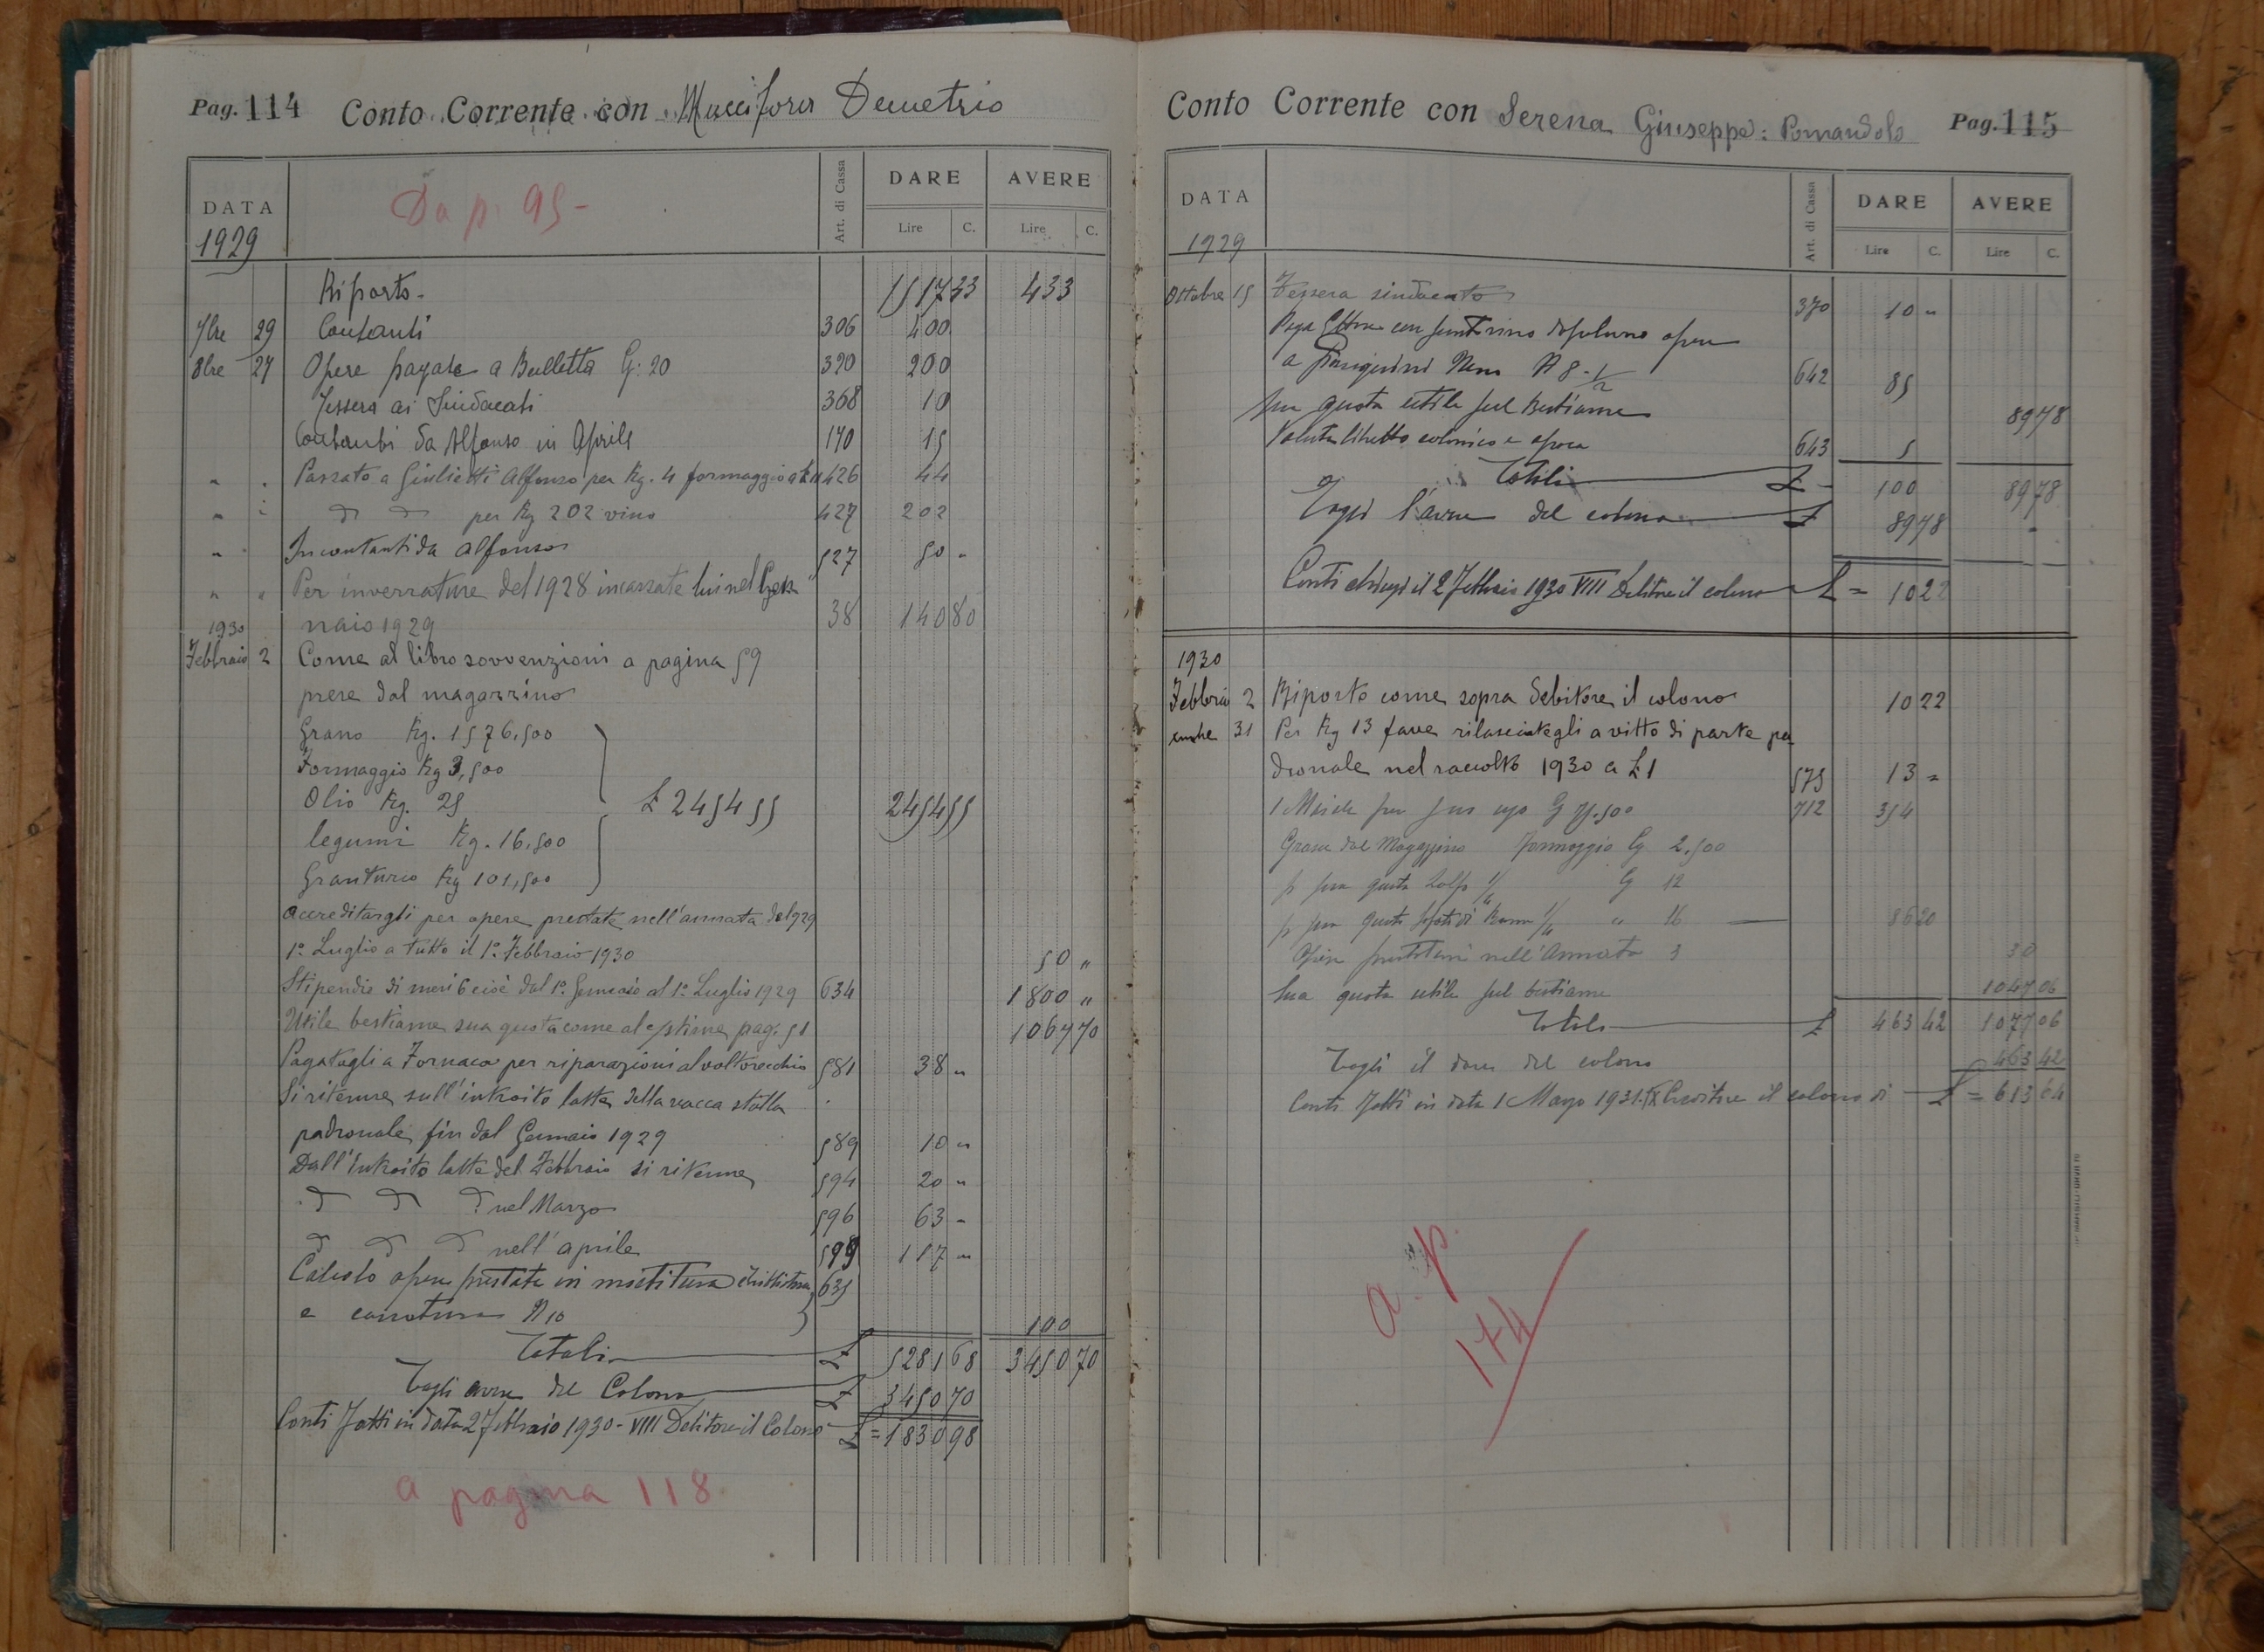 Pag. 114 Conto Corrente con Demetrio
DATA Da p. 95 - Art. di Cassa DARE AVERE
1929 Lire C. Lire C.
Riporto - 1517 33 433
7bre 29 Contanti 306 400
8bre 27 Opere pagate a Bulletta G: 20 320 200
Tessera ai Sindacati 368 10
Contanti da Alfonso in Aprile 170 15
" . Passato a Giulietti Alfonso per Kg. 4 formaggio 426 44
" " per Kg 202 vino 427 202
" . In contanti da Alfonso 527 50 "
" " Per inverrature del 1928 incassate lui nel Gen
1930 naio 1929 38 140 80
Febbraio 2 Come al libro sovvenzioni a pagina 59
prese dal magazzino
Grano Kg. 1576,500
Formaggio Kg 3,500
Olio Kg. 25 £ 2454 55 2454 55
legumi Kg. 16,500
Granturco Kg 101,500
Accreditargli per opere prestate nell'annata del 929
1° Luglio a tutto il 1° Febbraio 1930 50 "
Stipendio di mesi 6 cioè dal 1° Gennaio al 1° Luglio 1929 634 1800 "
Utile bestiame sua quota come al estimo pag. 51 1067 70
Pagatogli a Fornace per riparazioni al 581 38 "
Si ritenne sull'introito latte della vacca stalla
padronale fin dal Gennaio 1929 589 10 "
Dall'Introito latte del Febbraio si ritenne 594 20 "
nel Marzo 596 63 -
nell'aprile 599 117 "
Calcolo opere prestate in mietitura 635
e N 10 100
Totali £ 5281 68 3450 70
Togli avere del Colono £ 3450 70
Conti fatti in data 2 Febbraio 1930 - VIII Debitore il Colono £ = 1830 98
a pagina 118
Conto Corrente con Serena Giuseppe: Pomandolo Pag. 115
DATA Art. di Cassa DARE AVERE
1929 Lire C. Lire C.
Ottobre 15 Tessera sindacato 370 10 "
Paga
a Nem N 8 - 1/2 642 85
Sua quota utile sul Bestiame 89 78
Valuta libretto colonico e 643 5
Totali £ - 100 89 78
Togli l'avere del colono £ 89 78 -
Conti chiusi il 2 Febbraio 1930 VIII Debitore il colono £ = 10 22
1930
Febbraio 2 Riporto come sopra debitore il colono 10 22
31 Per Kg 13 fave rilasciategli a vitto di parte pa
dronale nel raccolto 1930 a £ 1 575 13 "
1 per suo uso 712 354
Grasce dal Magazzino Formaggio Cg 2,500
p sua quota Zolfo 1/4 Cg 12
p sua quota 1/4 " 16 86 20
Opere nell'Annata 3 30
Sua quota utile sul bestiame 1047 06
Totale £ 463 42 1077 06
Togli il dare del colono 463 42
Conti fatti in data 1 Marzo 1931 IX Creditore il colono di £ = 613 64
a. p.
174